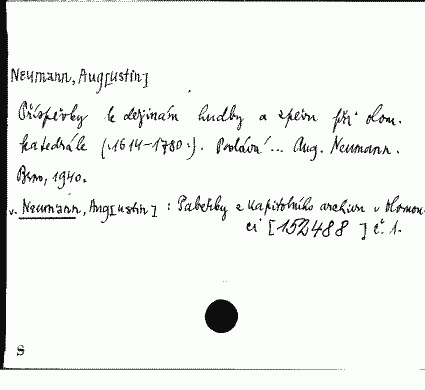 Neumann, Aug[ustin]
Příspěvky k dějinám hudby a zpěvu při olom.
katedrále (.1614-1780.). Podává... Aug. Neumann.
Brno, 1940.
v. Neumann, Aug[ustin] : Paběrky z kapitolního archivu v Olomou-
ci [152488 ] č. 1.
S